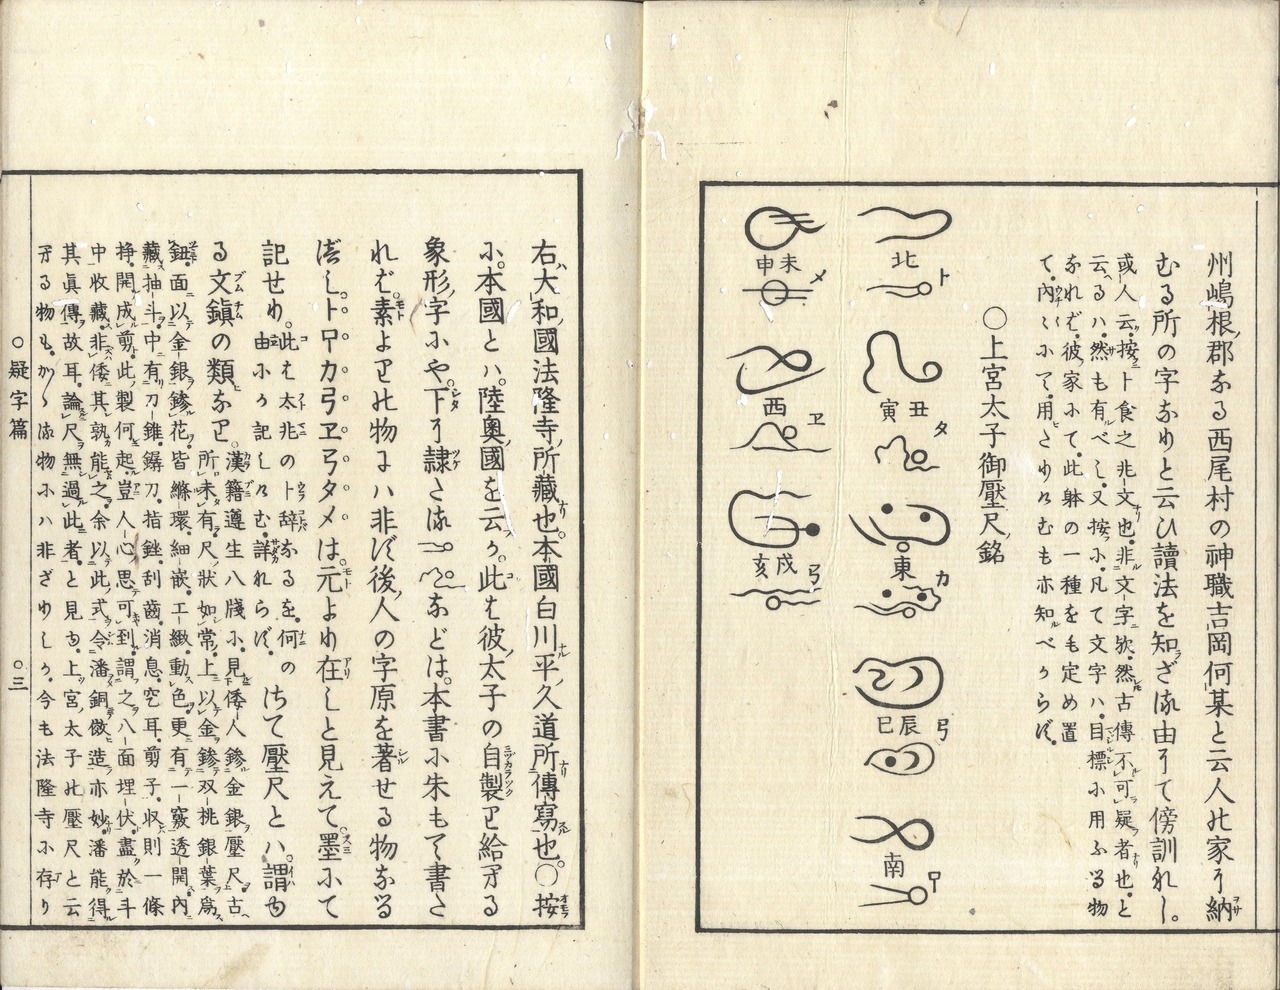 州嶋根郡なる西尾村の神職吉岡何某と云人の家に納ヲサ
むる所の字なりと云ひ讀法を知ラざる由にて傍訓れし。
或人云。按ニト食之兆文也。非文字ニ歟。然レ𪜈古傳不可疑者也。と
云へるハ。然も有べし。又按ふ。凡て文字ハ。目標に用ふる物
なれば。彼家にて。此躰の一種をも定め置
て。内〻にて。用ひたりけむも亦知ルべからず。
〇上宮太子御壓尺ノ銘
北 ト
丑寅 タ
東 カ
辰巳 弓
南
未申 メ
酉 ヱ
戌亥 弓
右ハ大和國法隆寺ノ所藏也。本國白川平ノ久道所傳寫也。〇按
ふ。本國とハ。陸奥國を云か。此は彼ノ太子の自製り給へる
象形ノ字にや。下に隷たる などは。本書に朱もて書た
れば。素より此物にハ非ず後ノ人の字原を著せる物なる
べし。 カ弓ヱ弓タメは。元より在しと見えて。墨にて
記せり。此は太兆の卜辞なるを。何の
由にか記しけむ。詳れらず。
さて壓尺とハ。謂ゆ
る文鎭の類なり。
漢籍遵生八牋に。見倭人鏒金銀壓尺。古
所未有。尺狀如常。上以金鏒双桃銀葉爲
鈕。面以金銀鏒花。皆縧環。細嵌。工緻動色。更有一竅透開。内
藏抽斗。中有刀錐。鑷刀。指銼。刮齒。消息。空耳。剪子。収則一條
掙。開成剪。此製何起。豈人心思可到。謂之八面埋伏。盡於斗
中收藏。非倭其孰能之。余以此式令潘銅倣造。亦妙。潘能得
其眞傳故耳。論尺無過此者。と見ゆ。上ノ宮太子の壓尺と云
へる物も。かゝる物にハ非ざりしか。今も法隆寺に存り
〇疑字篇
〇三